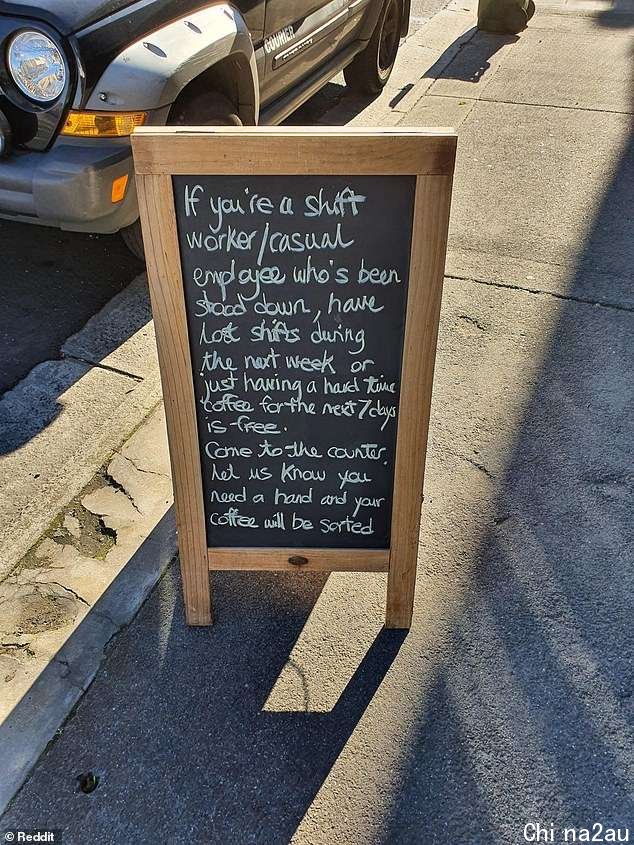 COURIER
If you're a shift
worker/casual
employee who's been
stood down, have
lost shifts during
the next week or
just having a hard time
coffee for the next 7 days
is free.
Come to the counter,
let us know you
need a hand and your
coffee will be sorted
© Reddit
Chi na2au